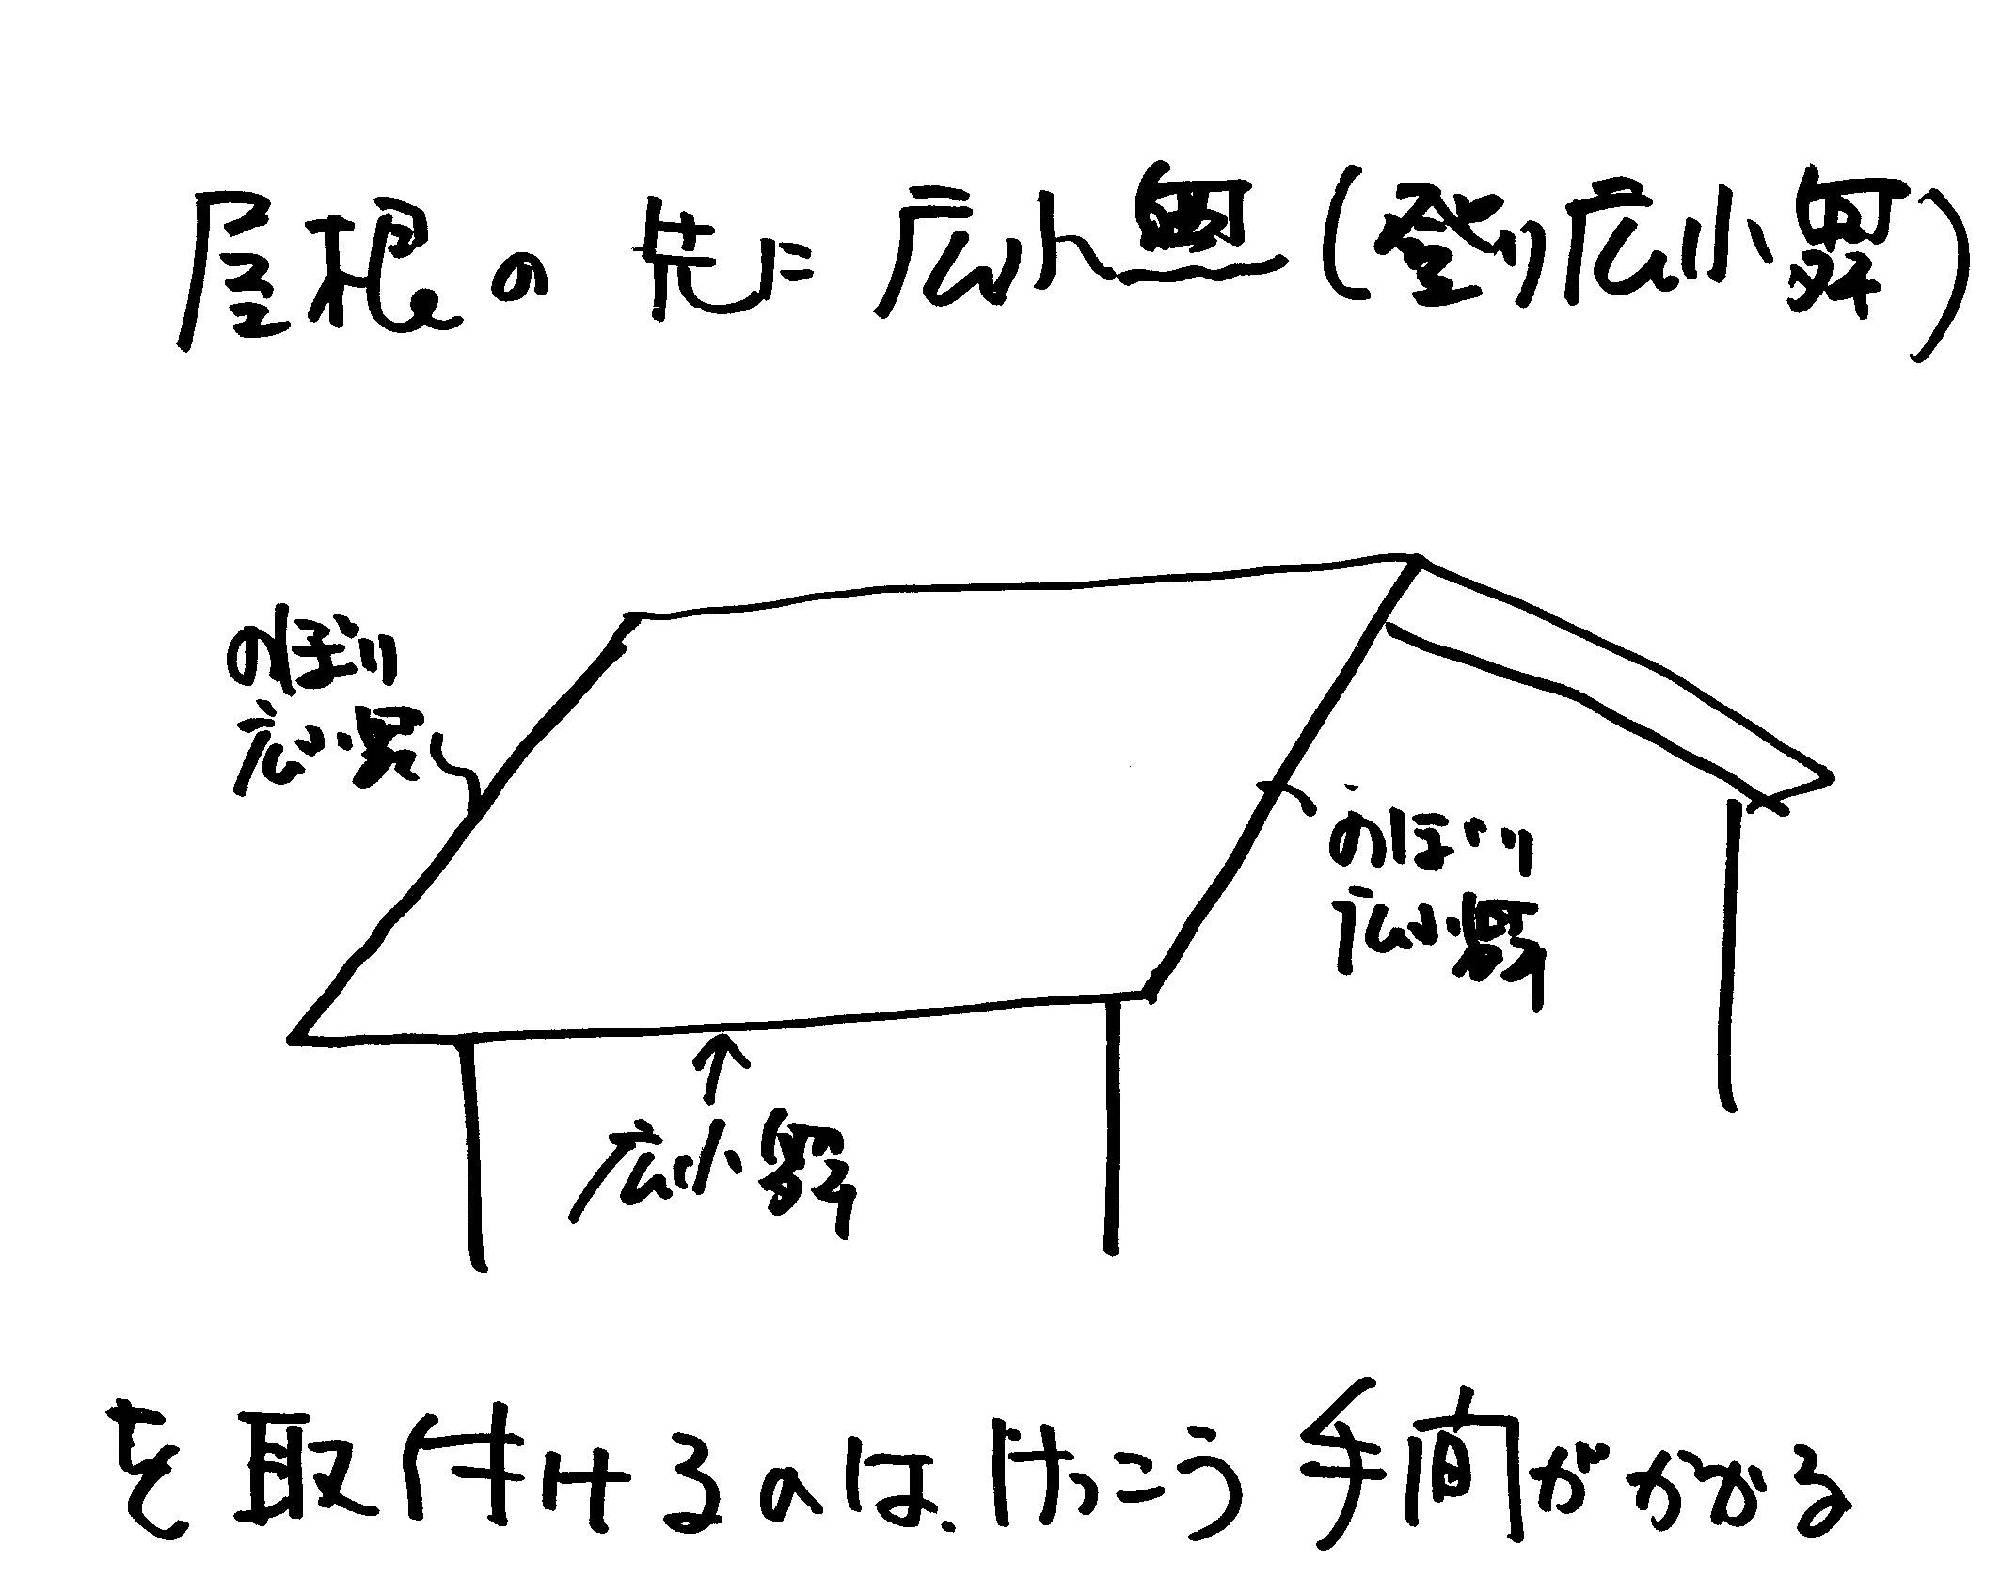 屋根の先に広小舞(登り広小舞)
のぼり
広小舞
のぼり
広小舞
広小舞
を取付けるのは、けっこう手間がかかる